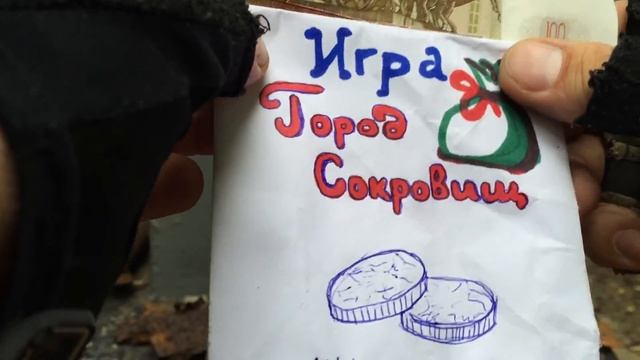 100
Игра
Город
Сокровищ